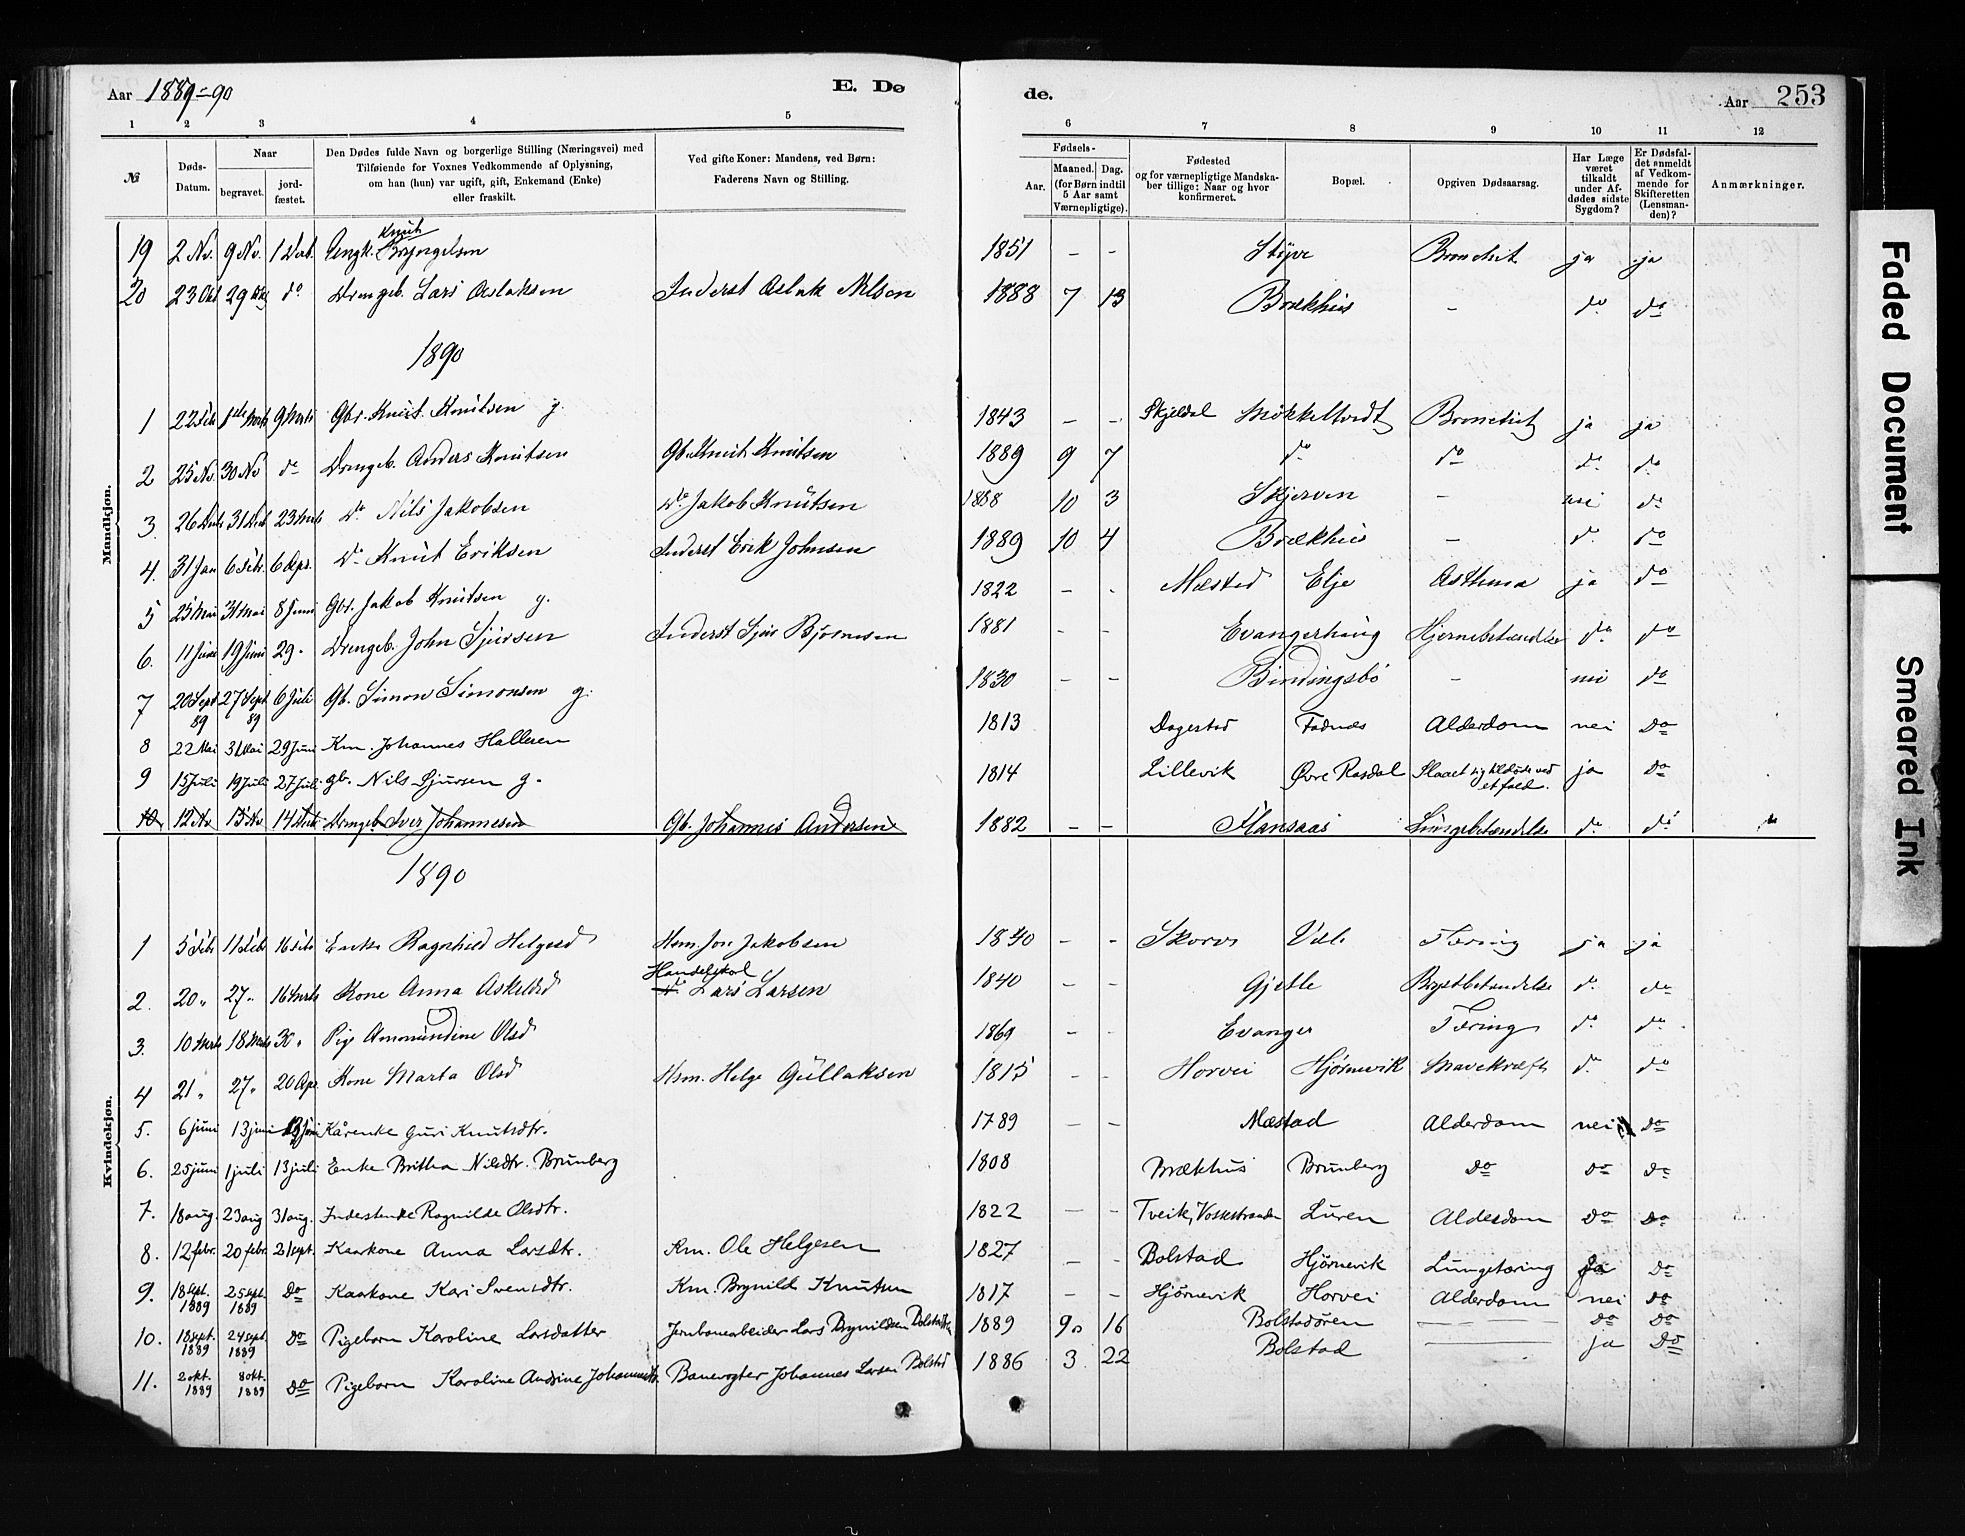 Aar 1889-90 E. Dø de. Aar 253
1 2 3 4 5 6 7 8 9 10 11 12
№ Døds-Datum. Naar begravet. jord-fæstet. Den Dødes fulde Navn og borgerlige Stilling (Næringsvei) med Tilføiende for Voxnes Vedkommende af Oplysning, om han (hun) var ugift, gift, Enkemand (Enke) eller fraskilt. Ved gifte Koner: Mandens, ved Børn: Faderens Navn og Stilling. Fødsels- Aar. Maaned. Dag. (for Børn indtil 5 Aar samt Værnepligtige). Fødested og for værnepligtige Mandska-ber tillige: Naar og hvor konfirmeret. Bopæl. Opgiven Dødsaarsag. Har Læge været tilkaldt under Af-dødes sidste Sygdom? Er Dødsfal-det anmeldt af Vedkom-mende for Skifteretten (Lensman-den)? Anmærkninger.
Mandkjøn.
19 2 Nv. 9 Nv. 1 Deb. Ungk. Knut Bryngelsen 1851 - - Styve Bronchit ja ja
20 23 Okt 29 Okt do Drengeb. Lars Aslaksen Inderst Aslak Nilsen 1888 7 13 Brækhus - do do
1890
1 22 Feb 1ste Marts 9 Marts Gbr. Knut Knutsen g. 1843 - - Skjeldal Mökkeltvedt Bronchit ja ja
2 25 Nv. 30 Nv do Drengeb. Anders Knutsen Gb. Knut Knutsen 1889 9 7 do do do do
3. 26 Deb 31 Deb 23 Marts do Nils Jakobsen do Jakob Knutsen 1888 10 3 Skjerven - nei do
4. 31 Jan 6 Febr. 6 Apr. do Knut Eriksen Inderst Erik Johnsen 1889 10 4 Brækhus - do do
5 25 Mai 31 Mai 8 Juni Gbr. Jakob Knutsen g. 1822 - - Mæstad Elje Asthma ja do
6. 11 Juni 19 Juni 29 - Drengeb. John Sjursen Inderst Sjur Bjørnesen 1881 - - Evangerhaug Hjernebetændlse do do
7 20 Sept 89 27 Sept 89 6 Juli Gb. Simon Simonsen g. 1830 - - Bindingsbö - nei do
8 22 Mai 31 Mai 29 Juni Km. Johannes Hallesen 1813 Dagestad Fadnæs Alderdom nei do
9 15 Juli 19 Juli 27 Juli gb. Nils Sjursen g. 1814 Lillevik Øvre Rasdal Slaaet sig tildøde ved et fald. ja do
10. 12 Nv 13 Nv 14 Deb Drengeb. Iver Johannesen Gb. Johannes Andersen 1882 - - Flansaas Lungebetændelse do do
1890
Kvindekjøn.
1 5 Feb 11 Feb 16 Feb Enke Ragnhild Helgesd Hsm. Jon Jakobsen 1840 - - Skorve Tæring ja ja
2. 20 " 27 " 16 Marts Kone Anna Askelsd Handelskarl do Lars Larsen 1840 - - Gjetle Brystbetændelse do do
3. 10 Marts 18 Marts 30 " Pige Ammundine Olsd 1869 - - Evanger Tæring do do
4 21 " 27 " 20 Apr. Kone Marta Olsd Hsm. Helge Gullaksen 1815 - - Horvei Hjørnevik Mavekræft do do
5. 6 juni 13 juni Kårenke Guri Knutsdtr. 1789 - - Mæstad Alderdom nei do
6. 25 juni 1 juli 13 juli Enke Britha Nilsdtr. Brunberg 1808 Brækhus Brunberg do do do
7. 18 aug. 23 aug 31 aug. Inderstenke Ragnilde Olsdtr. 1822 - - Tveite, Vossestranden Luren Alderdom do do
8. 12 febr. 20 febr. 21 sept. Kaarkone Anna Larsdtr. Km. Ole Helgesen 1827 - - Bolstad Hjørnevik Lungetæring ja do
9. 18 sept. 1889 25 sept. 1889 do Kaarkone Kari Svensdtr. Km. Brynild Knutsen 1817 - - Hjørnevik Horvei Alderdom nei do
10. 18 sept. 1889 24 sept. 1889 do Pigebarn Karoline Larsdatter Jernbanearbeider Lars Brynildsen 1889 9 16 Bolstadören do do
11. 2 okt. 1889 8 okt. 1889 do Pigebarn Karoline Andrine Johannesdtr. Banevogter Johannes Larsen Bolstad 1886 3 22 Bolstad ja do
Faded Document
Smeared Ink